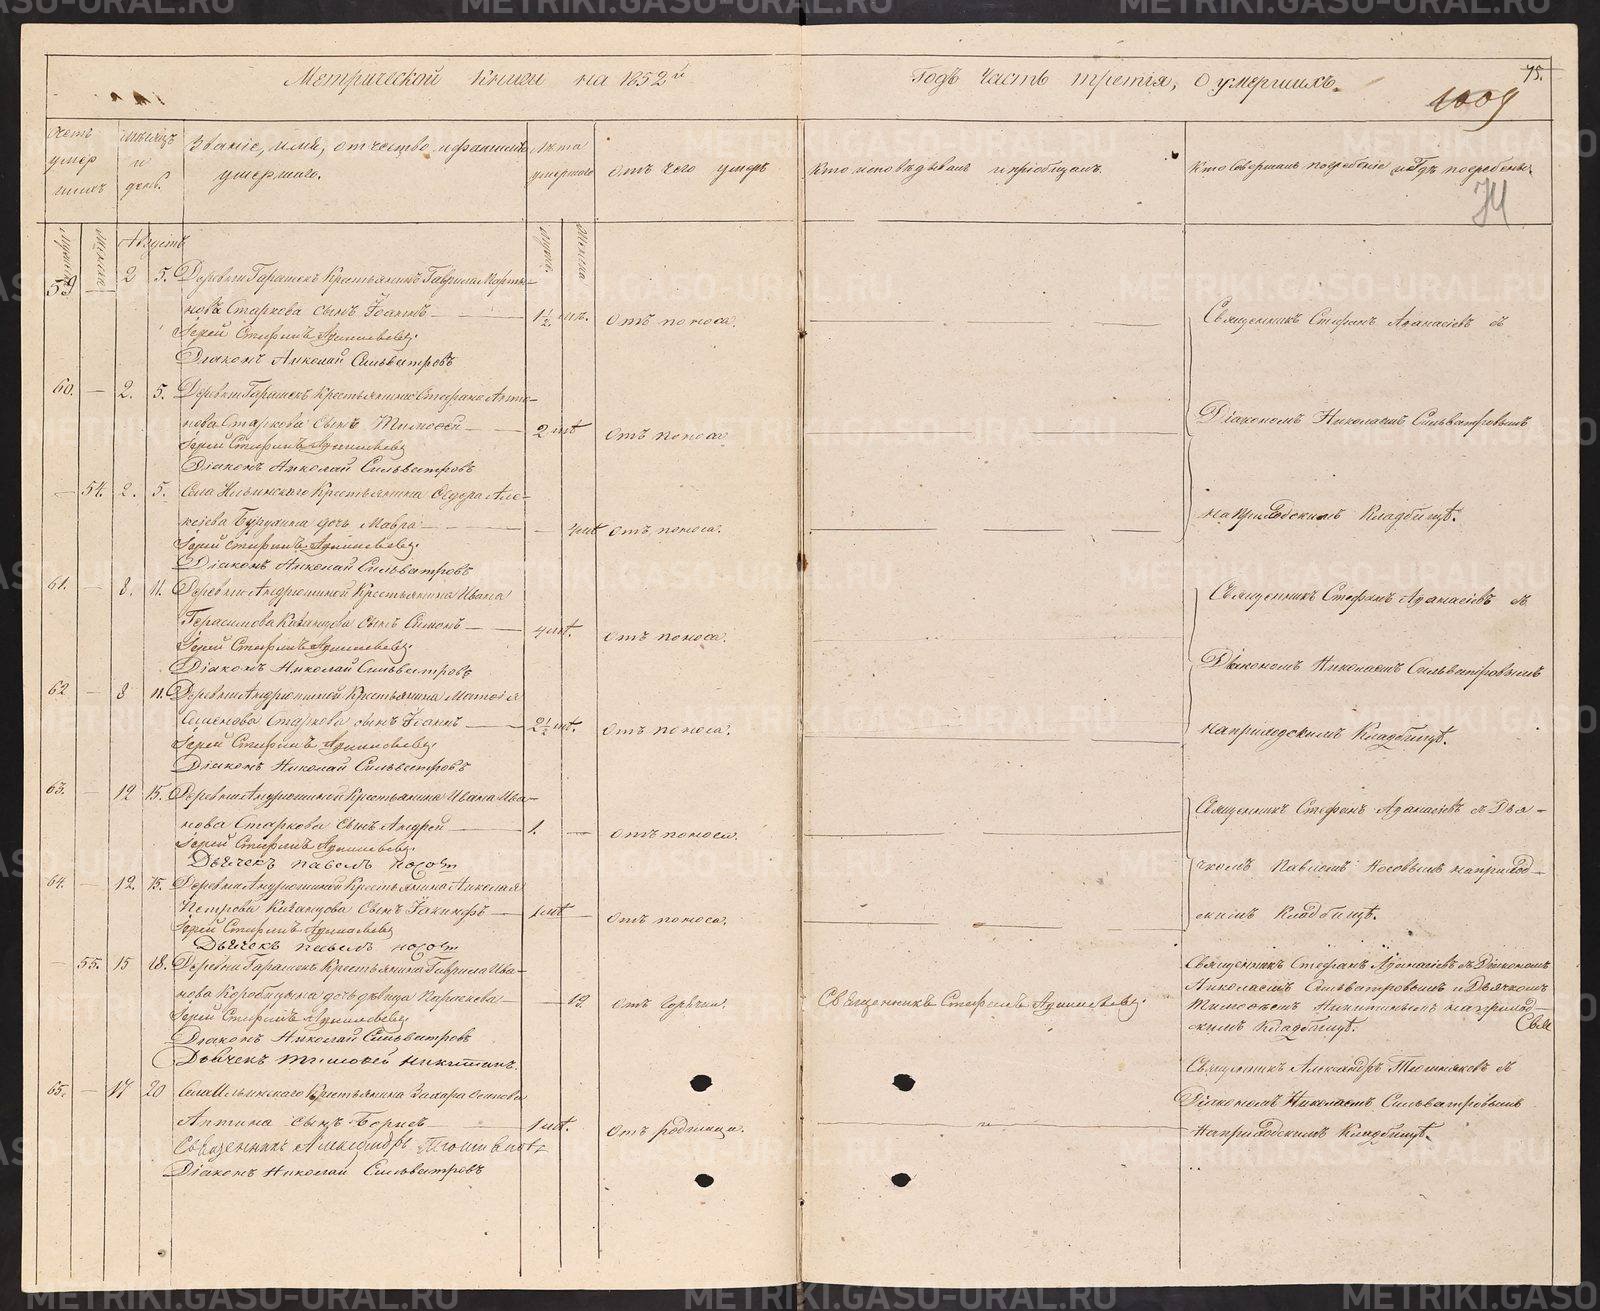 Метрической книги на 1852й
годъ часть третія, о умершихъ.
75.
1009
74
Счетъ умер шихъ
Мѣсяцъ и день.
Званіе, имя, отчество и фамилія умершаго.
Лѣта умершаго
отъ чего умеръ
Кто исповѣдывалъ и пріобщалъ.
Кто совершалъ погребеніе и гдѣ погребены.
Августъ
59 — 2 5. Деревни Гарашекъ Крестьянина Гаврила Марты-
нова Старкова сынъ Іоаннъ — 1½ отъ поноса.
Іерей Стефанъ
Діаконъ Николай Сильвестровъ
Священникъ Стефанъ Аѳанасіевъ съ
60. — 2. 5. Деревни Гарашекъ Крестьянина Стефана Анто-
нова Старкова сынъ Тимоѳей — 2 отъ поноса
Іерей Стефанъ
Діаконъ Николай Сильвестровъ
Діакономъ Николаемъ Сильвестровымъ
— 54. 2. 5. Села Ильинскаго Крестьянина Ѳедора Але-
ксіева дочь Мавра — отъ поноса.
Іерей Стефанъ
Діаконъ Николай Сильвестровъ
на приходскомъ Кладбищѣ.
61. — 8. 11. Деревни Андрюшиной Крестьянина Ивана
Герасимова Казанцова сынъ Симонъ — 4 отъ поноса.
Іерей Стефанъ
Діаконъ Николай Сильвестровъ
Священникъ Стефанъ Аѳанасіевъ съ
62 — 8 11. Деревни Андрюшиной Крестьянина Матѳія
Семенова Старкова сынъ Іоаннъ — 2½ отъ поноса.
Іерей Стефанъ
Діаконъ Николай Сильвестровъ
Діакономъ Николаемъ Сильвестровымъ
на приходскомъ Кладбищѣ.
63. — 12 15. Деревни Андрюшиной Крестьянина Ивана Ива-
нова Старкова сынъ Андрей — 1. — отъ поноса.
Іерей Стефанъ
Дьячекъ Павелъ Носовъ
Священникъ Стефанъ Аѳанасіевъ съ Дья-
чкомъ Павломъ Носовымъ на приход-
скомъ Кладбищѣ.
64. — 12. 15. Деревни Андрюшиной Крестьянина Николая
Петрова Казанцова сынъ Іакинѳъ — 1 отъ поноса.
Іерей Стефанъ
Дьячекъ Павелъ Носовъ
— 55. 15 18. Деревни Гарашекъ Крестьянина Гаврила Ива-
нова Коробицына дочь дѣвица Параскева — 19. отъ горячки.
Священникъ Стефанъ
Іерей Стефанъ
Діаконъ Николай Сильвестровъ
Дьячекъ Тимоѳей Никитинъ.
Священникъ Стефанъ Аѳанасіевъ съ Діакономъ
Николаемъ Сильвестровымъ и Дьячкомъ
Тимоѳеемъ Никитинымъ на приход-
скомъ Кладбищѣ.
65. — 17 20 Села Ильинскаго Крестьянина Захара Осипова
Аптина сынъ Борисъ — 1 отъ родимца.
Священникъ Александръ
Діаконъ Николай Сильвестровъ
Священникъ Александръ съ
Діакономъ Николаемъ Сильвестровымъ
на приходскомъ Кладбищѣ.
METRIKI.GASO-URAL.RU